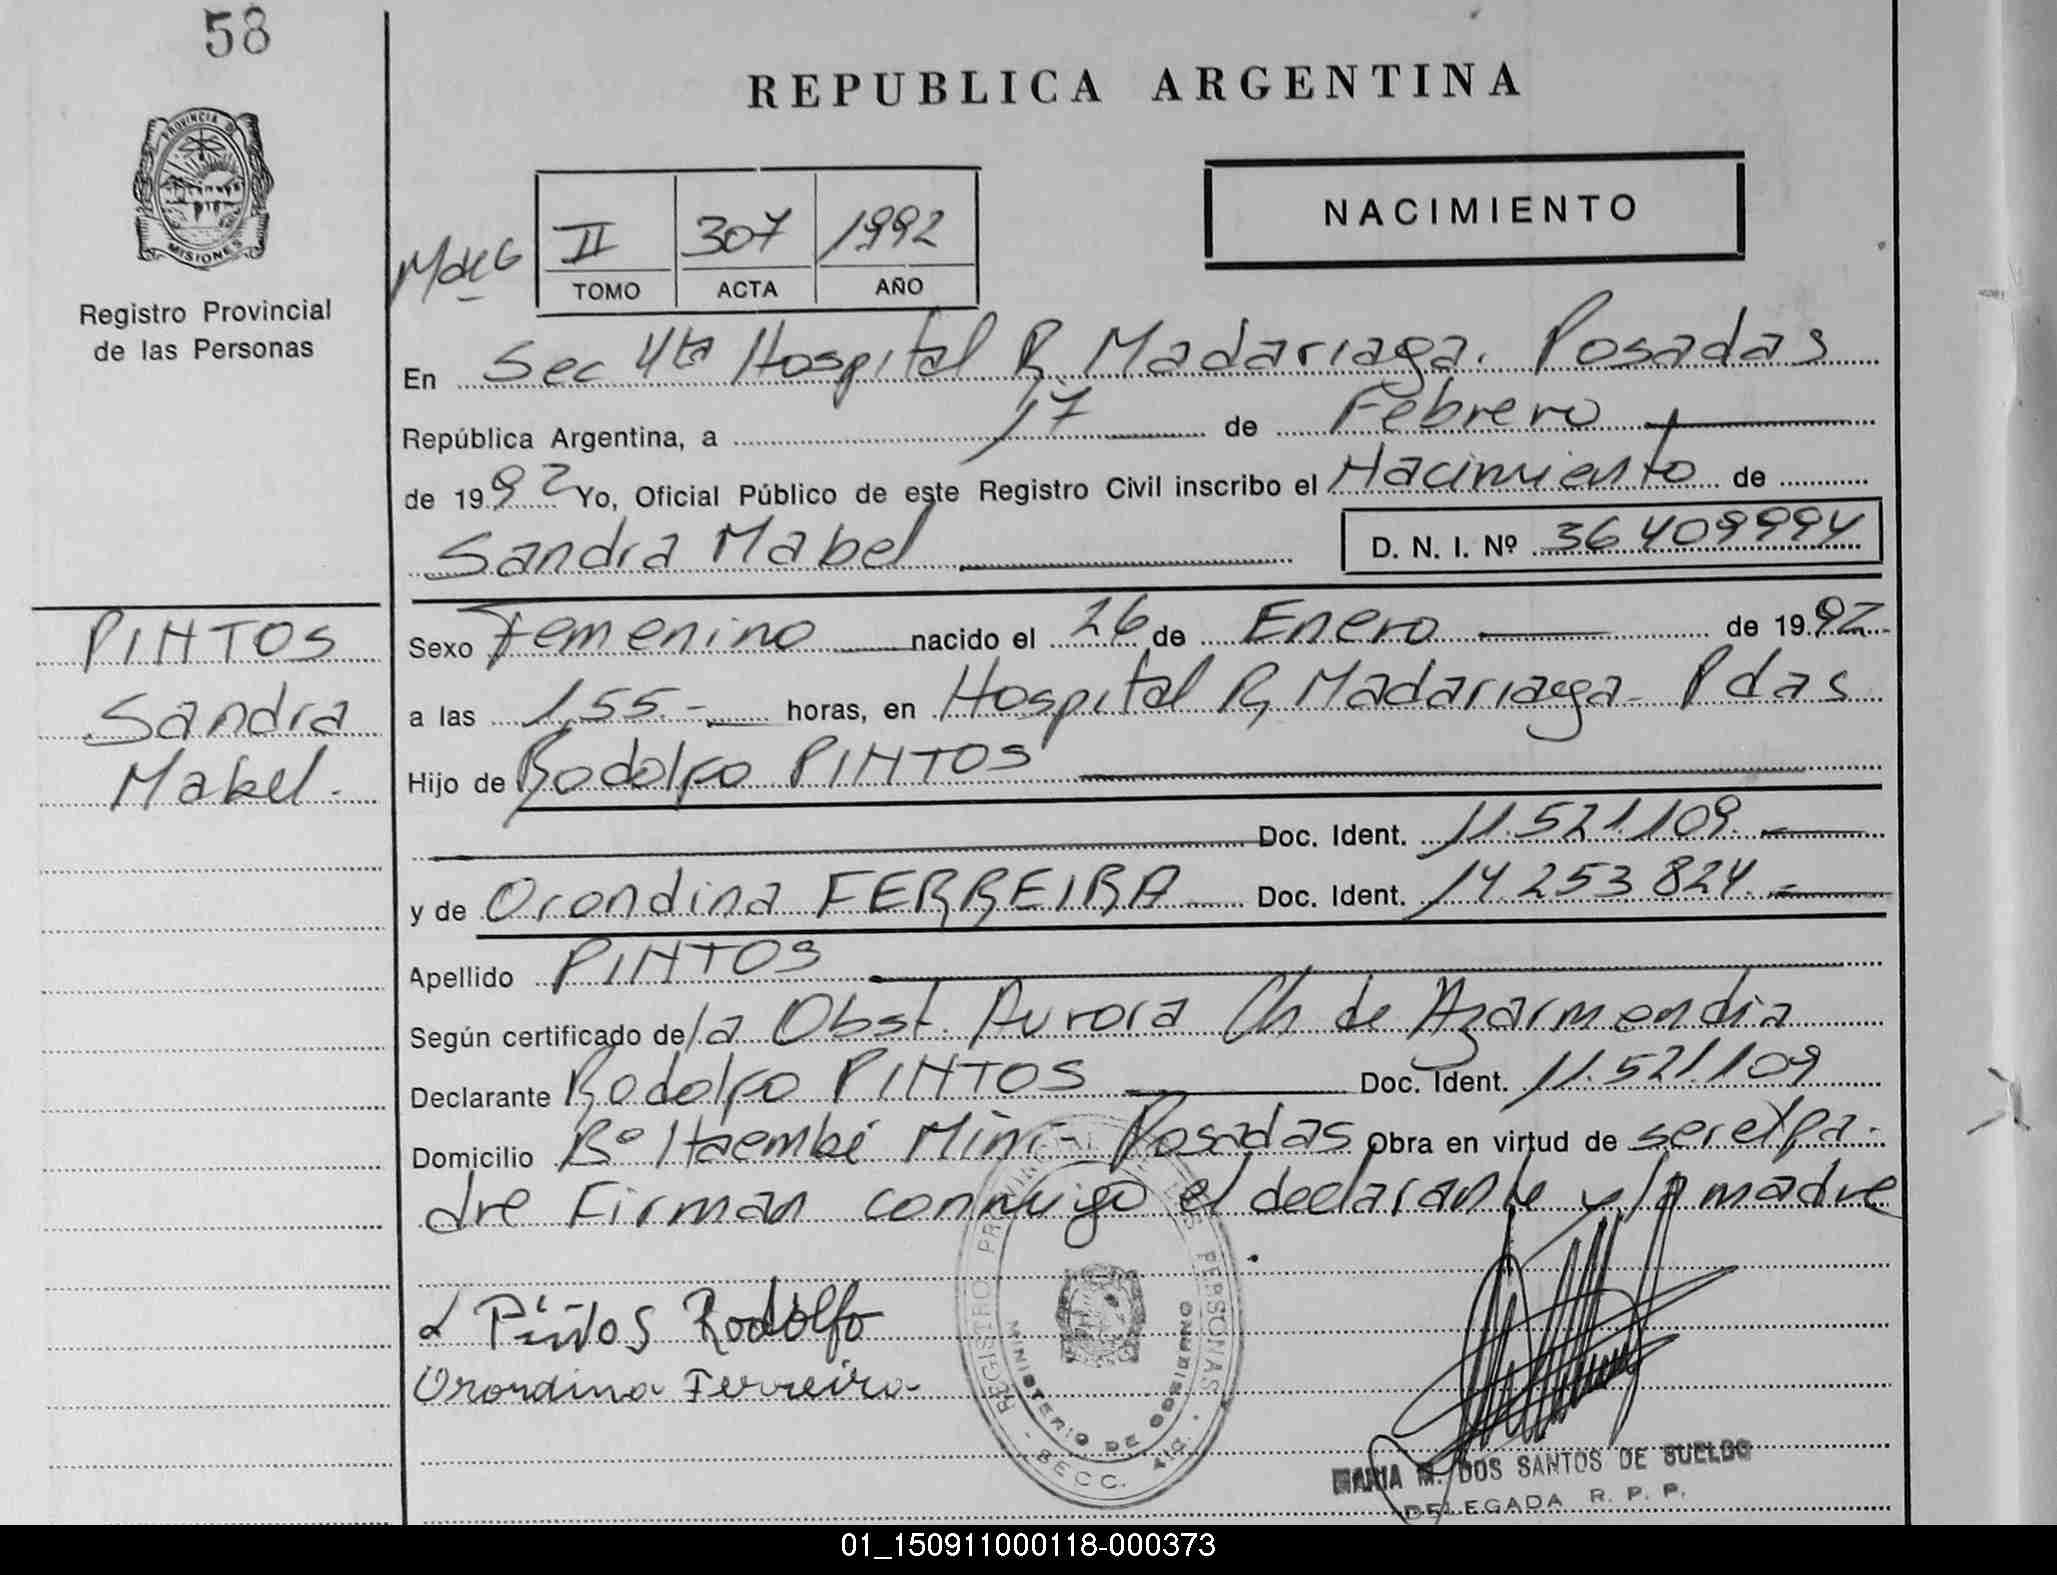 58
REPUBLICA ARGENTINA
PROVINCIA D
MISIONES
NACIMIENTO
II 307 1992
TOMO ACTA AÑO
Registro Provincial
de las Personas
En Sec 4ta Hospital R Madariaga. Posadas
República Argentina, a 17 de Febrero
de 1992 Yo, Oficial Público de este Registro Civil inscribo el Nacimiento de
Sandra Mabel D. N. I. Nº 36409994
PINTOS
Sandra
Mabel.
Sexo Femenino nacido el 26 de Enero de 1992
a las 1,55.- horas, en Hospital R, Madariaga - Pdas
Hijo de Rodolfo PINTOS
Doc. Ident. 11.521.109.-
y de Orondina FERREIRA Doc. Ident. 14.253.824.-
Apellido PINTOS
Según certificado de la Obst. Aurora Ch de Azarmendia
Declarante Rodolfo PINTOS Doc. Ident. 11.521.109
Domicilio Bº Itaembé Mini - Posadas Obra en virtud de ser el pa-
dre Firman conmigo el declarante y la madre
Pintos Rodolfo
Orondina Ferreira
REGISTRO PROVINCIAL DE LAS PERSONAS
MINISTERIO DE GOBIERNO
SECC. 4ta.
MARIA M. DOS SANTOS DE SUELDO
DELEGADA R. P. P.
01_150911000118-000373